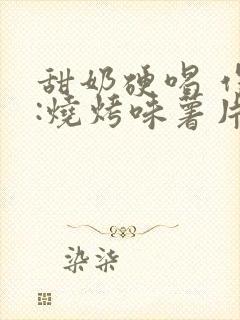 甜奶硬唱
:燒烤味薯片
染柒